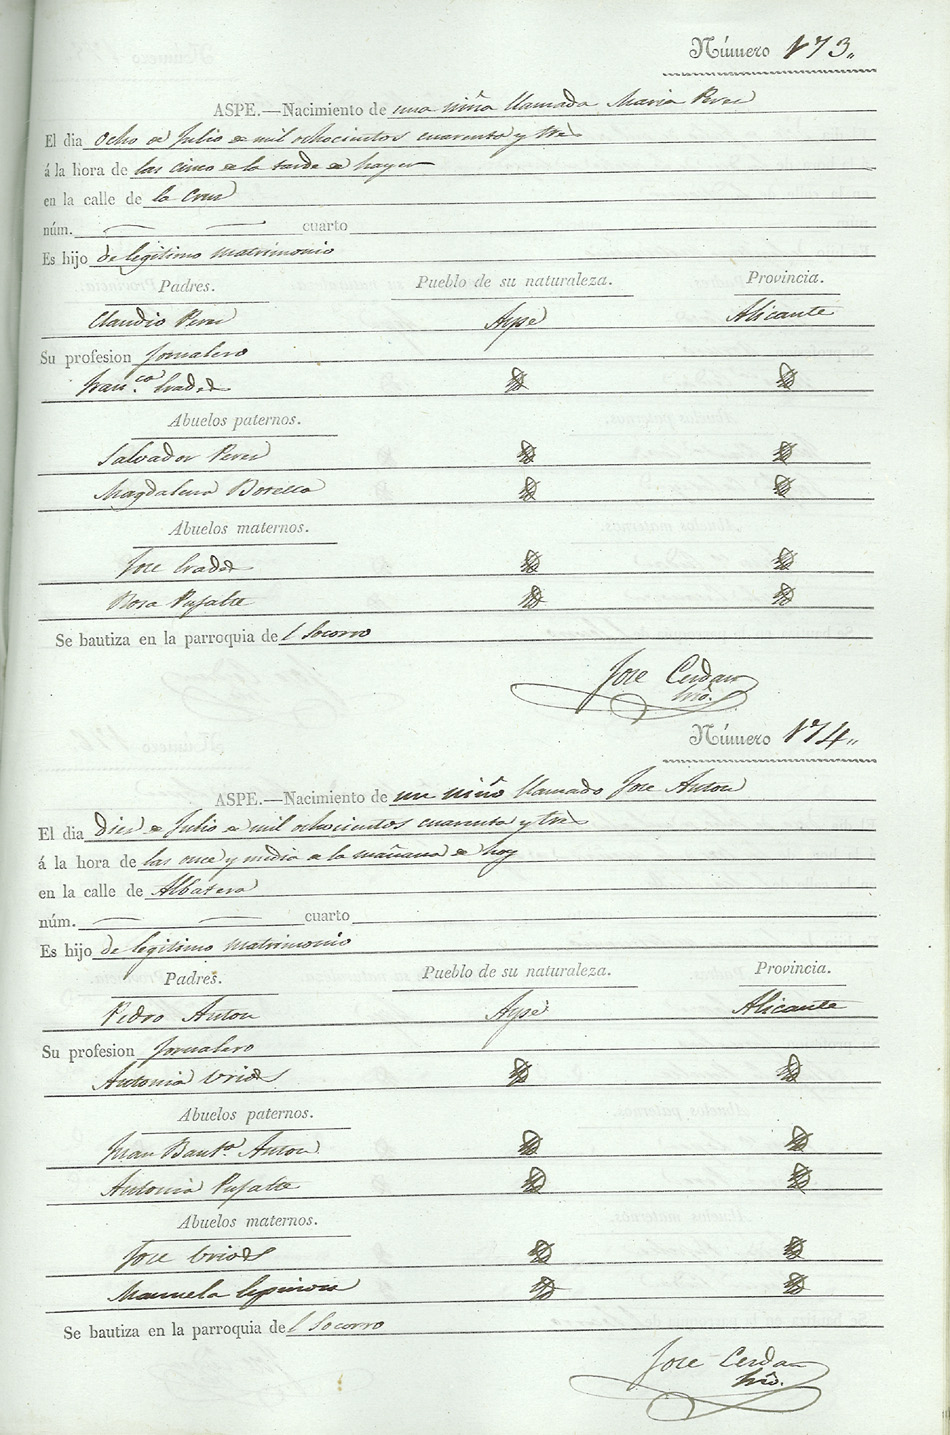 Número 173.
ASPE.—Nacimiento de una niña llamada Maria Perez
El dia ocho de Julio de mil ochocientos cuarenta y tres
á la hora de las cinco de la tarde de hayer
en la calle de la Cruz
núm. cuarto
Es hijo de legitimo matrimonio
Padres. Pueblo de su naturaleza. Provincia.
Claudio Perez Aspe Alicante
Su profesion Jornalero
Fran.ca
Abuelos paternos.
Salvador Perez
Magdalena Botella
Abuelos maternos.
Jose
Rosa Pujalte
Se bautiza en la parroquia del Socorro
Jose Cerdan
Número 174.
ASPE.—Nacimiento de un niño llamado Jose Anton
El dia Diez de Julio de mil ochocientos cuarenta y tres
á la hora de las once y media de la mañana de hoy
en la calle de Albatera
núm. cuarto
Es hijo de legitimo matrimonio
Padres. Pueblo de su naturaleza. Provincia.
Pedro Anton Aspe Alicante
Su profesion Jornalero
Antonia
Abuelos paternos.
Juan Baut.a Anton
Antonia Pujalte
Abuelos maternos.
Jose
Manuela
Se bautiza en la parroquia del Socorro
Jose Cerdan